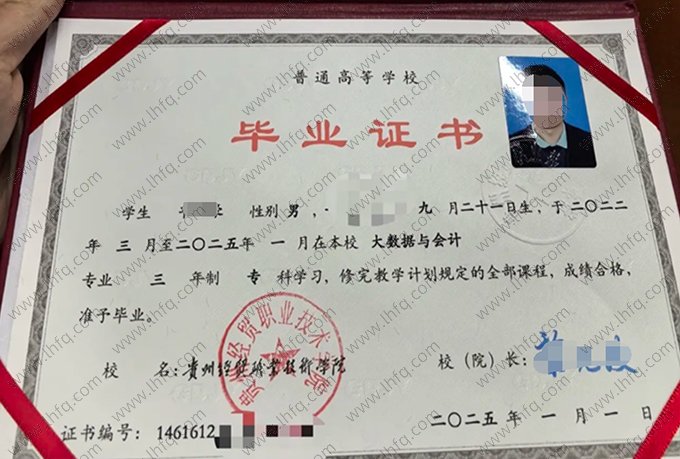 普通高等学校
毕业证书
学生 性别 男， 九 月二十一日生，于二〇二二
年 三 月至二〇二五年 一 月在本校 大数据与会计
专业 三 年制 专 科学习，修完教学计划规定的全部课程，成绩合格，
准予毕业。
校 名：贵州经贸职业技术学院
贵州经贸职业技术学院
校（院）长：
证书编号：1461612
二〇二五 年 一 月 一 日
www.lhfq.com